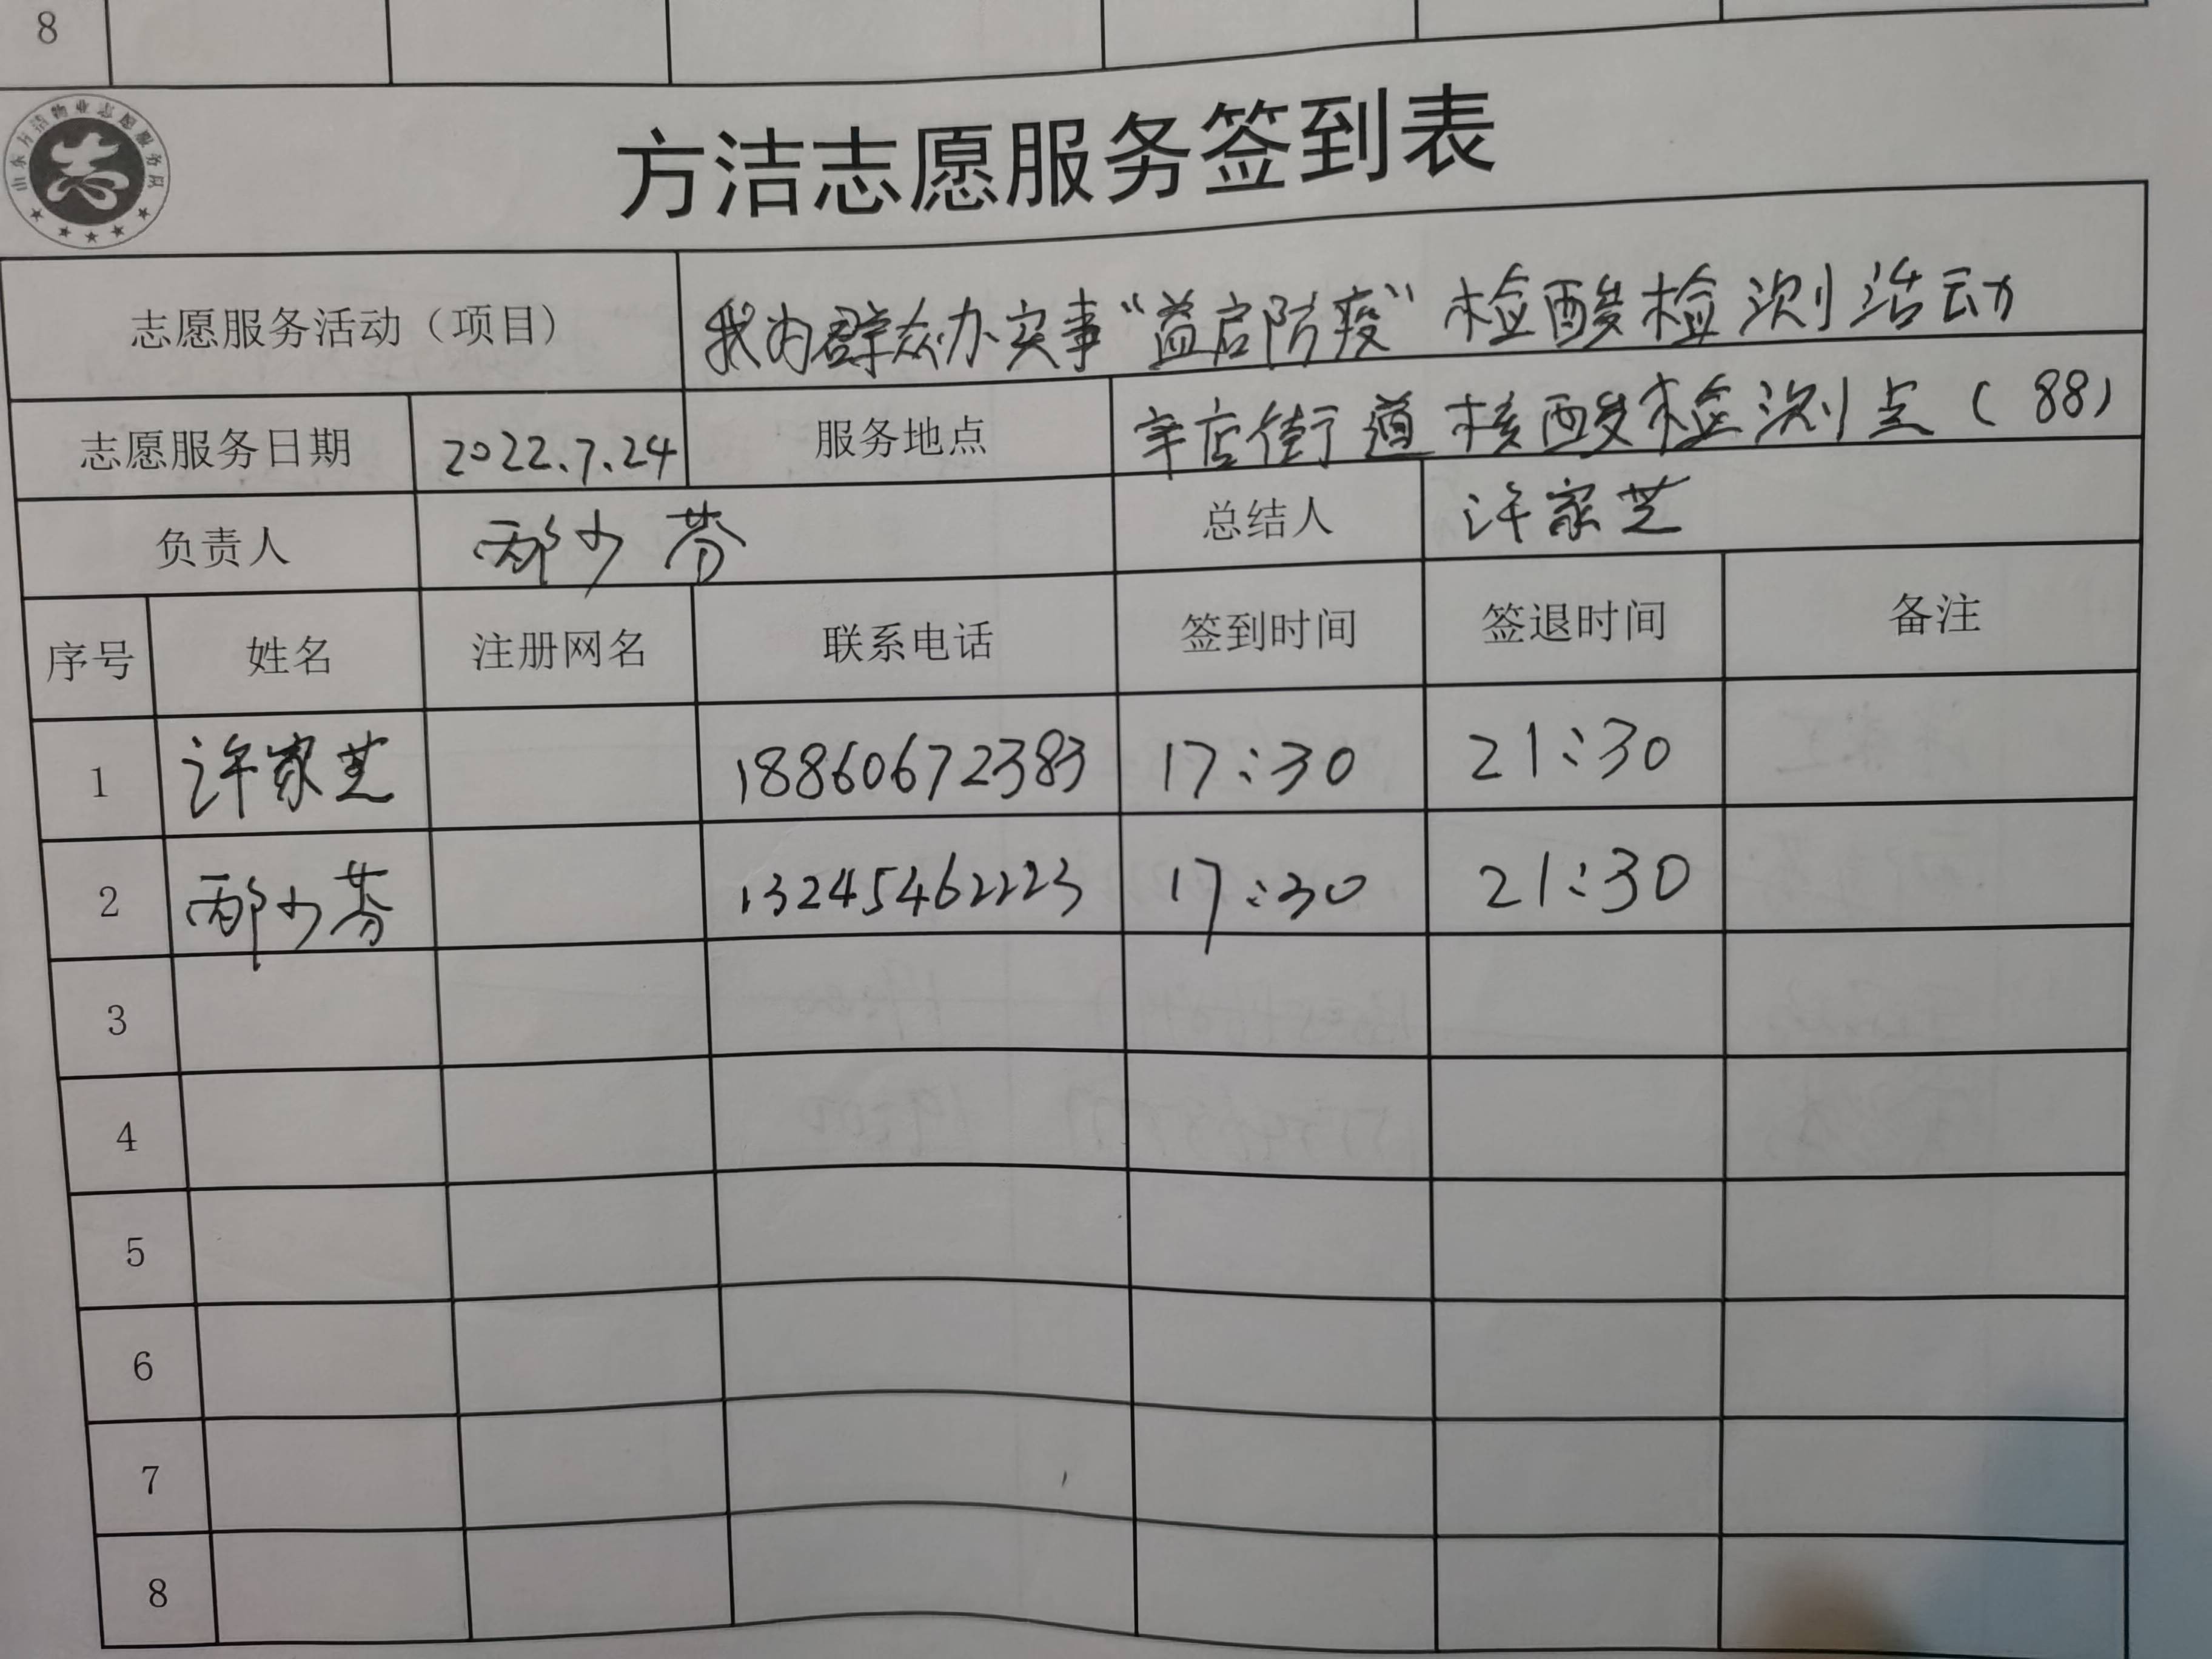 8
山东方洁物业志愿服务队
方洁志愿服务签到表
志愿服务活动（项目） 我为群众办实事“益启防疫”检酸检测活动
志愿服务日期 2022.7.24 服务地点 辛店街道核酸检测点（88）
负责人 邴少芬 总结人 许家芝
序号 姓名 注册网名 联系电话 签到时间 签退时间 备注
1 许家芝 18860672383 17:30 21:30
2 邴少芬 13245462223 17:30 21:30
3
4
5
6
7
8